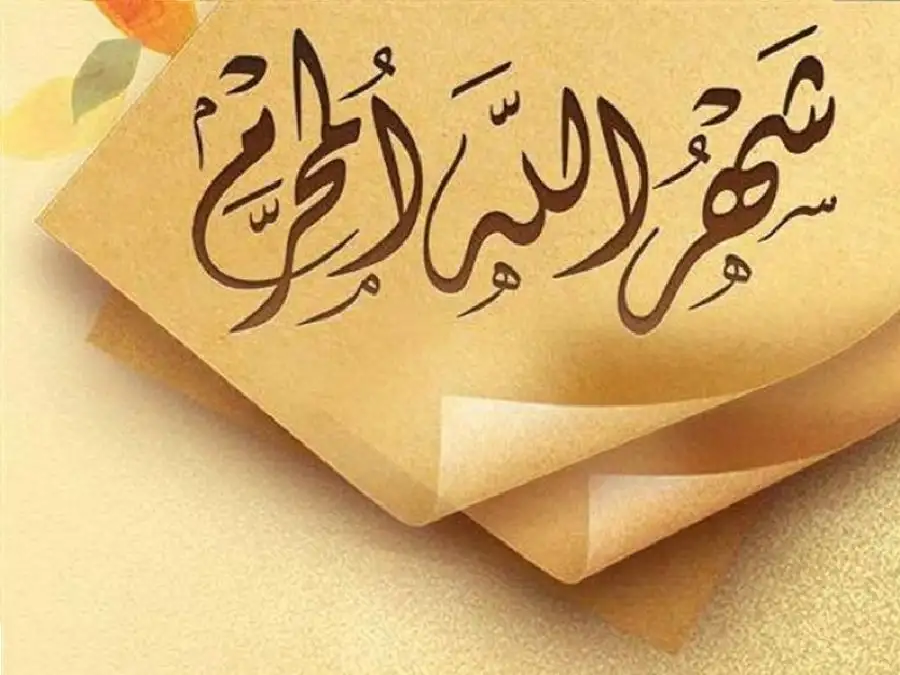 شَهْرُ اللهِ الْمُحَرَّم